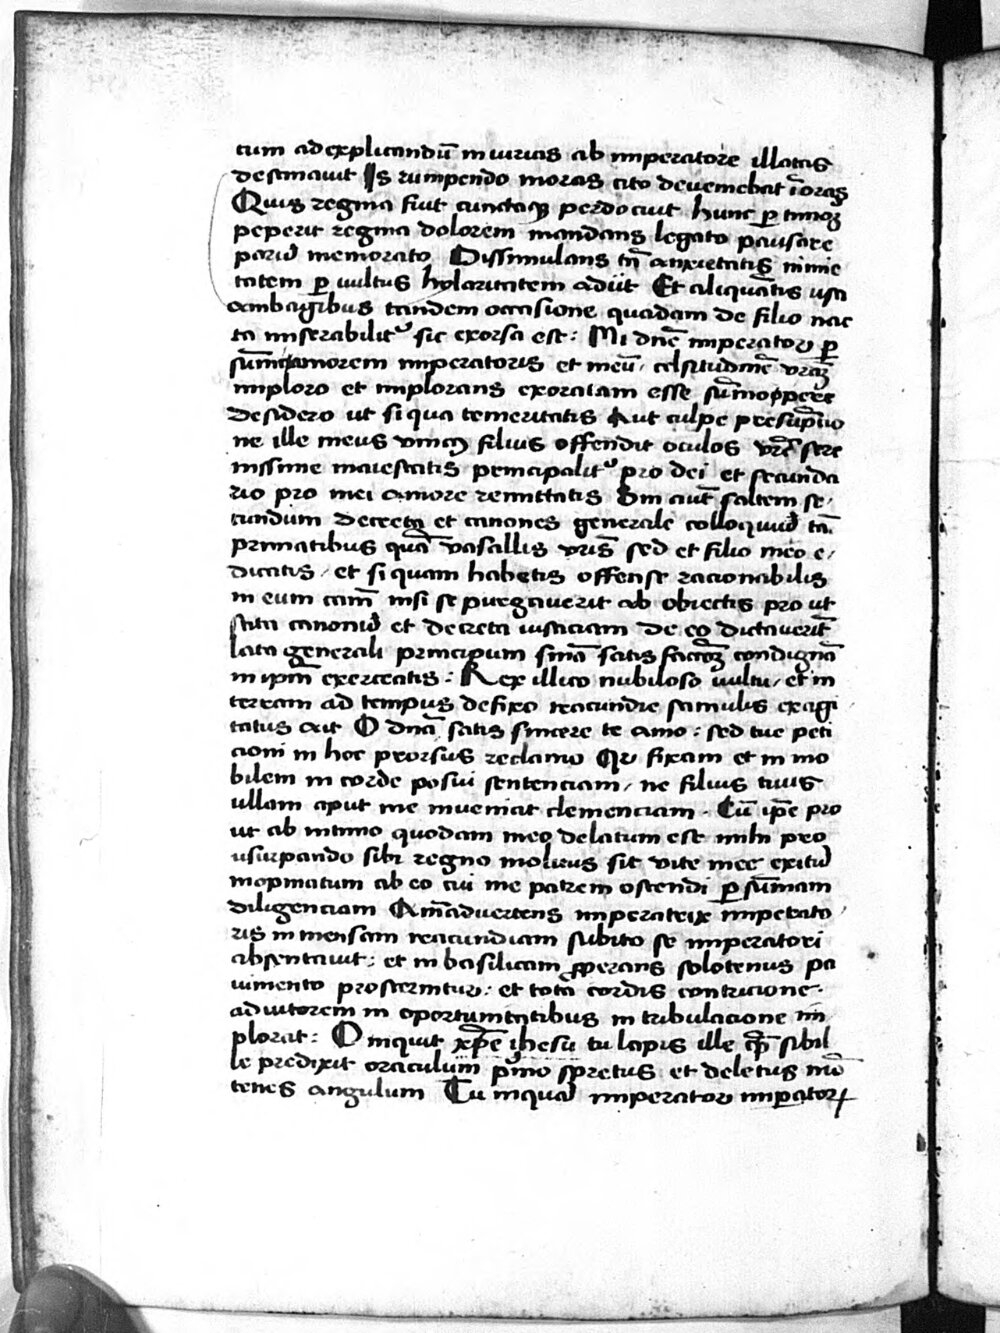 tum ad explicandū iniurias ab imperatore illatas
destinauit Is rumpendo moras cito deueniebat ī oras
Quis regina fiut cunctaqꝫ perdocuit hunc ꝑ timoꝝ
peperit regina dolorem mandans legato pausare
parūꝑ memorato Dissimulans tn̄ anxietatis inmē
tatem ꝑ uultus hylaritatem adiit Et aliquātis usa
ambagibus tandem occasione quadam de filio nac
ta miserabilit᷑ sic exorsa est: Mi dn̄e imperator ꝑ
sūmū amorem imperatoris et meū celsitudinē vr̄aꝫ
imploro et implorans exoratam esse sūmoppere
desidero ut si qua temeritatis aut culpe presūpcio
ne ille meus vnicꝰ filius offendit oculos vr̄e sere
nissime maiestatis principalit᷑ pro dei et secunda
rio pro mei amore remittatis Sin aut̄ saltem se
cundum decreta et canones generale colloquiū tā
primatibus quā vasallis vr̄is sed et filio meo e
dicatis / et si quam habetis offense racionabilis
in eum cām nisi se purgauerit ab obiectis pro ut
stita canonū et decreta iusticiam de eo dictauerīt
lata generali principum sn̄ia satisfactōꝫ condignā
in ip̄m exerceatis: Rex illico nubiloso uultu / et in
terram ad tempus defixo iracundie stimulis exagi
tatus ait O dn̄a satis sincere te amo: sed tue peti
cioni in hoc prorsus reclamo Qr fixam et in mo
bilem in corde posui sentenciam / ne filius tuus
ullam aput me inueniat clemenciam. Cū ip̄e pro
ut ab intimo quodam meo delatum est mihi pro
usurpando sibi regno molitus sit vite mee exitū
inopinatum ab eo cui me patrem ostendi ꝑ sūmam
diligenciam Aīaduertens imperatrix imperato
ris inmensam iracundiam subito se imperatori
absentauit: et in basilicam ꝓperans solotenus pa
uimento prosternitur: et tota cordis contricione
adiutorem in oportunitatibus in tribulacione im
plorat: O inquit xp̄e ihesu tu lapis ille quē sibil
le predixit oraculum pͥmo spretus et deletus mō
tenes angulum Tu inquā imperator imꝑatoꝝ